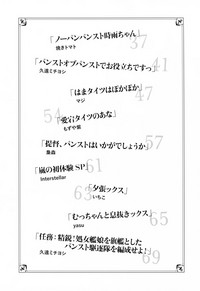 「ノーパンパンスト時雨ちゃん」
焼きトマト
37
「パンストオブパンストでお役立ちですっ」
久遠ミチヨシ
41
「はまタイツはぽかぽか」
マジ
49
「愛宕タイツのあな」
もずや紫
54
「提督、パンストはいかがでしょうか」
57
「嵐の初体験SP」
Interstellar
61
「夕張ックス」
いちこ
63
「むっちゃんと息抜きックス」
yasu
65
「任務:精鋭!処女艦娘を旗艦とした
パンスト駆逐隊を編成せよ!」
久遠ミチヨシ
69